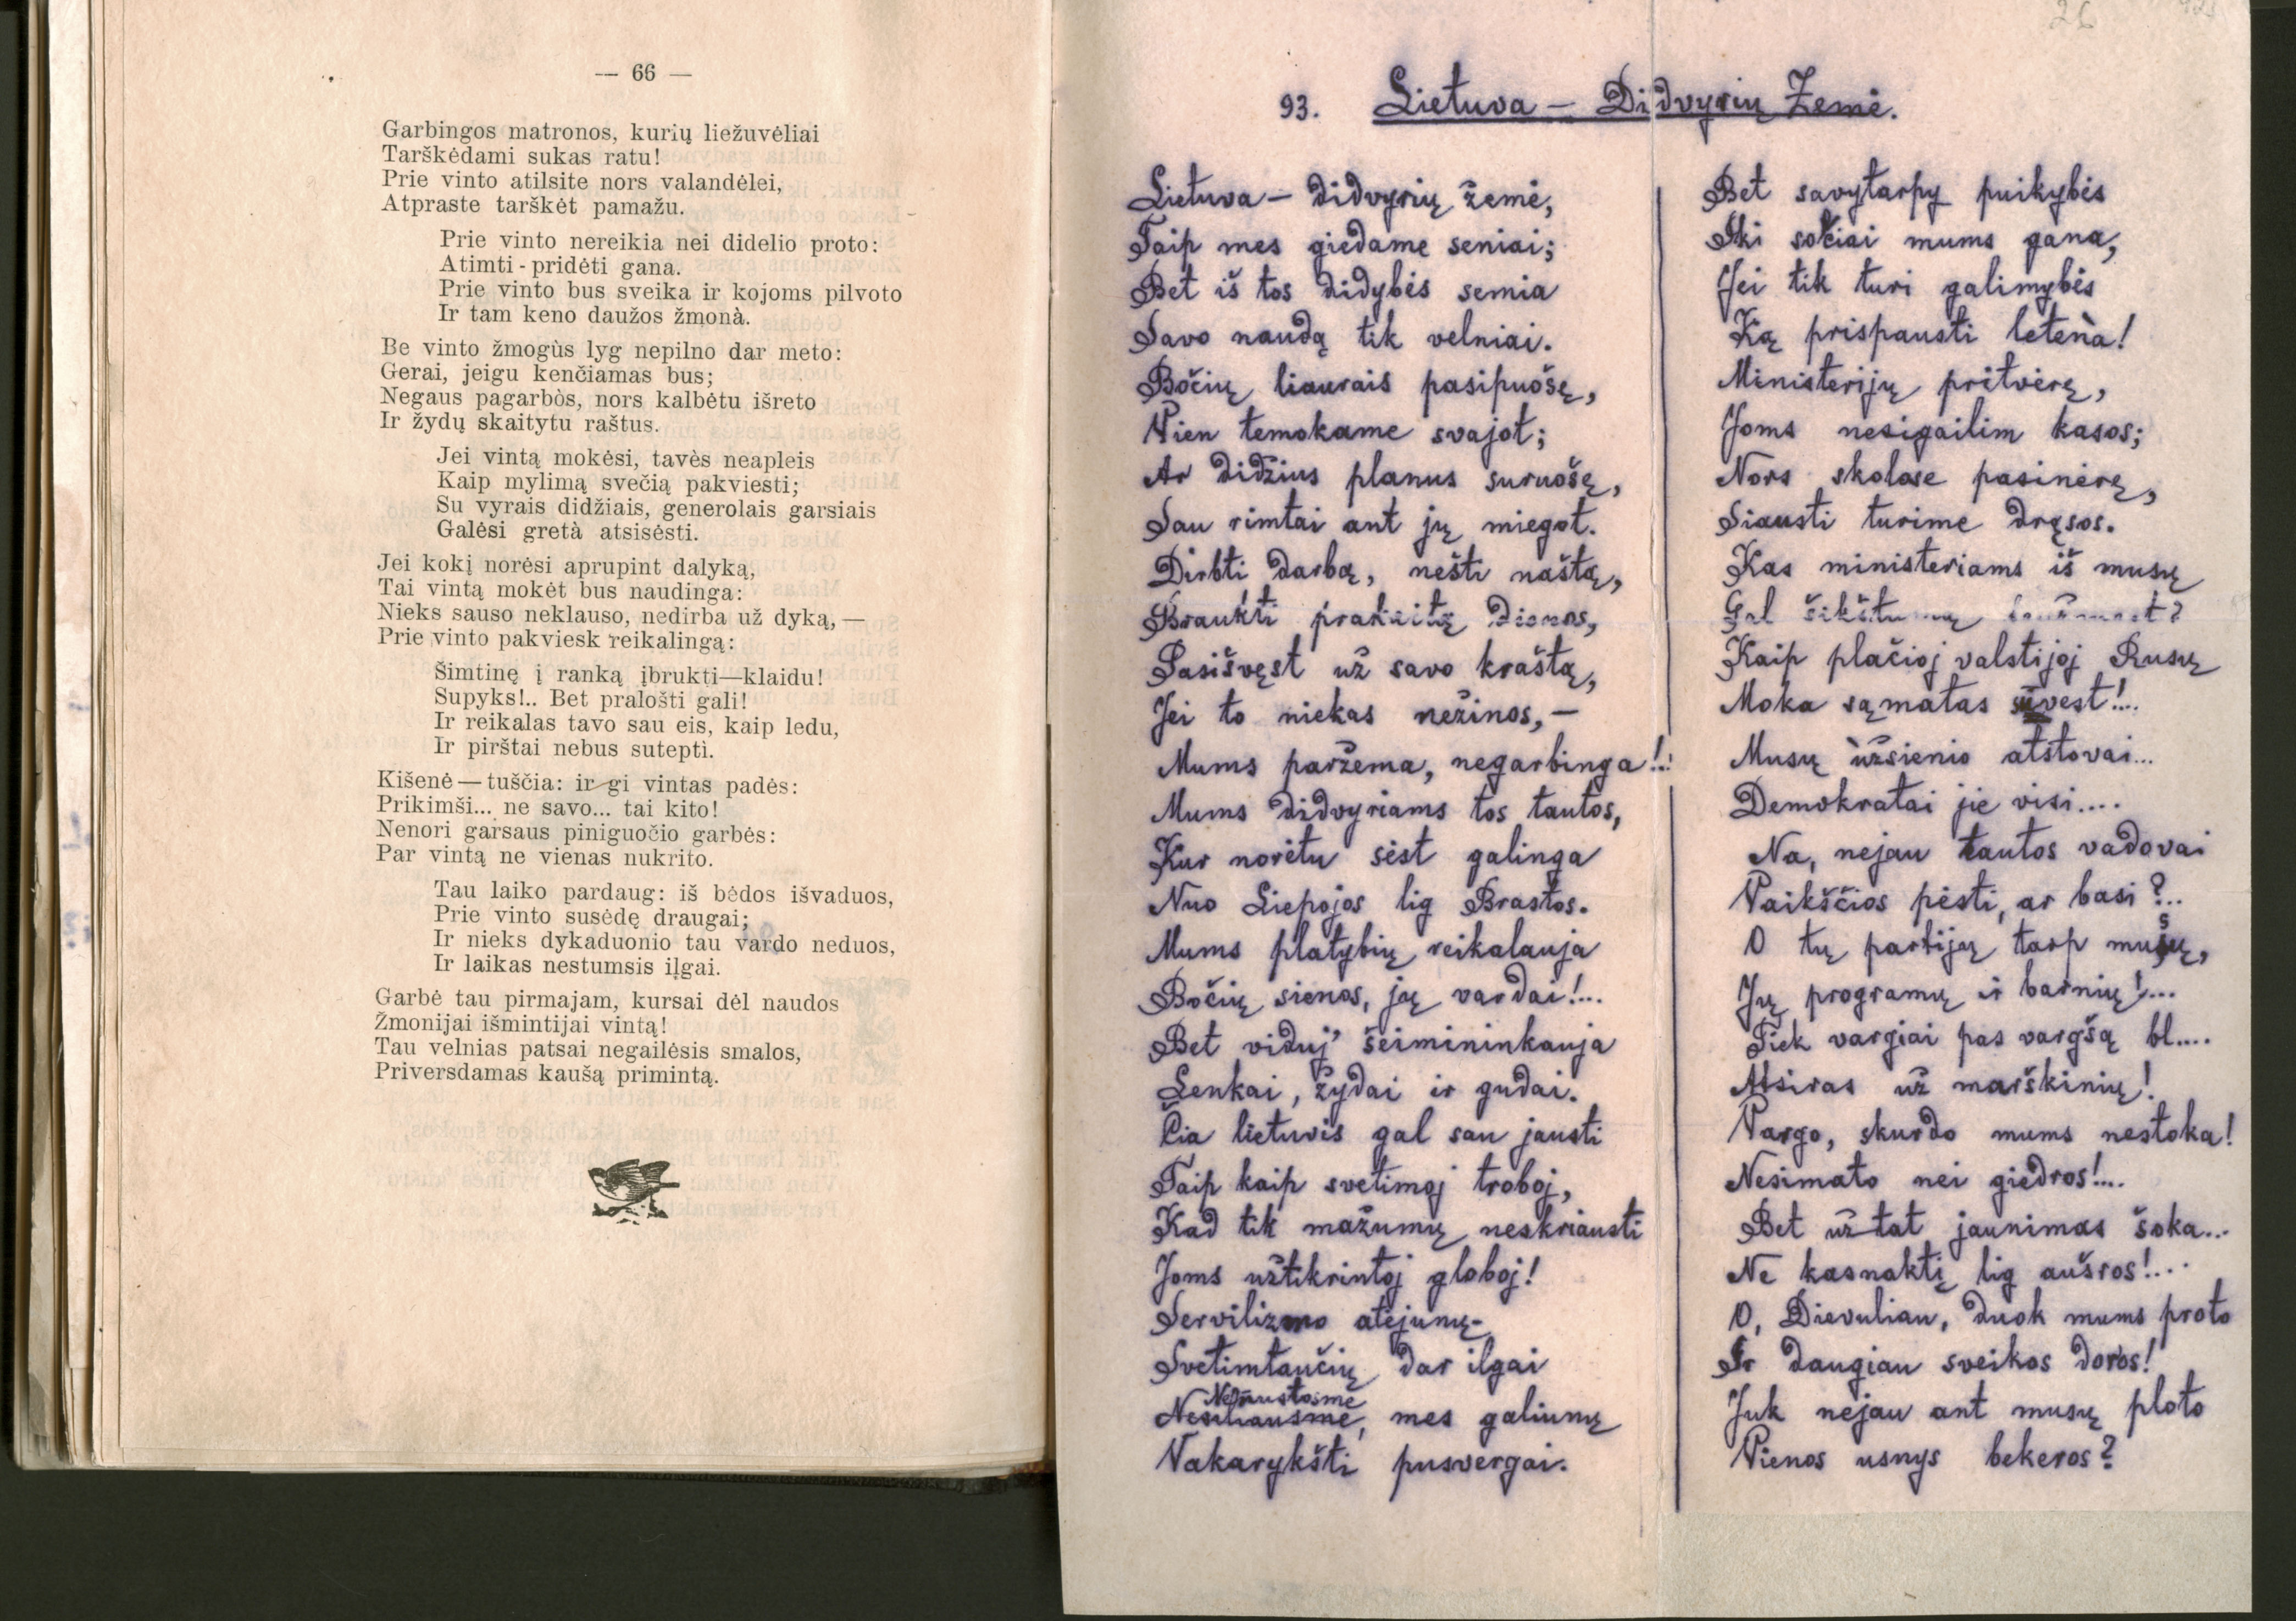 — 66 —
Garbingos matronos, kurių liežuvėliai
Tarškėdami sukas ratu!
Prie vinto atilsite nors valandėlei,
Atpraste tarškėt pamažu.
Prie vinto nereikia nei didelio proto:
Atimti-pridėti gana.
Prie vinto bus sveika ir kojoms pilvoto
Ir tam keno daužos žmonà.
Be vinto žmogùs lyg nepilno dar meto:
Gerai, jeigu kenčiamas bus;
Negaus pagarbòs, nors kalbėtu išreto
Ir žydų skaitytu raštus.
Jei vintą mokėsi, tavès neapleis
Kaip mylimą svečią pakviesti;
Su vyrais didžiais, generolais garsiais
Galėsi gretà atsisėsti.
Jei kokį norėsi aprupint dalyką,
Tai vintą mokėt bus naudinga:
Nieks sauso neklauso, nedirba už dyką, —
Prie vinto pakviesk reikalingą:
Šimtinę į ranką įbrukti—klaidu!
Supyks!.. Bet pralošti gali!
Ir reikalas tavo sau eis, kaip ledu,
Ir pirštai nebus sutepti.
Kišenė — tuščia: ir gi vintas padės:
Prikimši... ne savo... tai kito!
Nenori garsaus piniguočio garbės:
Par vintą ne vienas nukrito.
Tau laiko pardaug: iš bėdos išvaduos,
Prie vinto susėdę draugai;
Ir nieks dykaduonio tau vardo neduos,
Ir laikas nestumsis ilgai.
Garbė tau pirmajam, kursai dėl naudos
Žmonijai išmintijai vintą!
Tau velnias patsai negailėsis smalos,
Priversdamas kaušą primintą.
26
93. Lietuva — Didvyrių Žemė.
Lietuva — didvyrių žemė,
Taip mes giedame seniai;
Bet iš tos didybės semia
Savo naudą tik velniai.
Bočių liaurais pasipuošę,
Vien temokame svajot;
Ar didžius planus suruošę,
Sau rimtai ant jų miegot.
Dirbti darbą, nešti naštą,
Braukti prakaitą dienos,
Pasišvęst už savo kraštą,
Jei to niekas nežinos, —
Mums paržema, negarbinga!..
Mums didvyriams tos tautos,
Kur norėtu sėst galinga
Nuo Liepojos lig Brastos.
Mums platybių reikalauja
Bočių sienos, jų vardai!...
Bet viduj' šeimininkauja
Lenkai, žydai ir gudai.
Čia lietuvis gal sau jausti
Taip kaip svetimoj troboj,
Kad tik mažumų neskriausti
Joms užtikrintoj globoj!
Servilizmo atėjunų-
Svetimtaučių dar ilgai
Nenustosme
mes galiunų
Vakarykšti pusvergai.
Bet savytarpy puikybės
Iki sočiai mums gana,
Jei tik turi galimybės
Ką prispausti letena!
Ministerijų pritvėrę,
Joms nesigailim kasos;
Nors skolose pasinėrę,
Siausti turime drąsos.
Kas ministeriams iš musų
Gal
Kaip plačioj valstijoj Rusų
Moka sąmatas suvest!...
Musų užsienio atstovai...
Demokratai jie visi....
Na, nejau tautos vadovai
Vaikščios pėsti, ar basi?..
O tų partijų tarp musų,
Jų programų ir barnių!...
Tiek vargiai pas vargšą bl....
Atsiras už marškinių!
Vargo, skurdo mums nestoka!
Nesimato nei giedros!...
Bet už tat jaunimas šoka...
Ne kasnaktį lig aušros!...
O, Dievuliau, duok mums proto
Ir daugiau sveikos doros!
Juk nejau ant musų ploto
Vienos usnys bekeros?